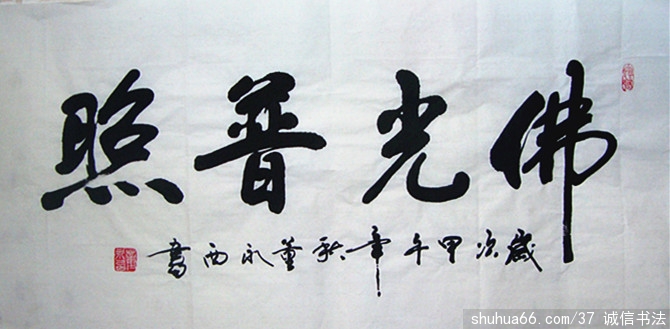 佛光普照
歲次甲午年秋董永西書
shuhua66.com/37 诚信书法